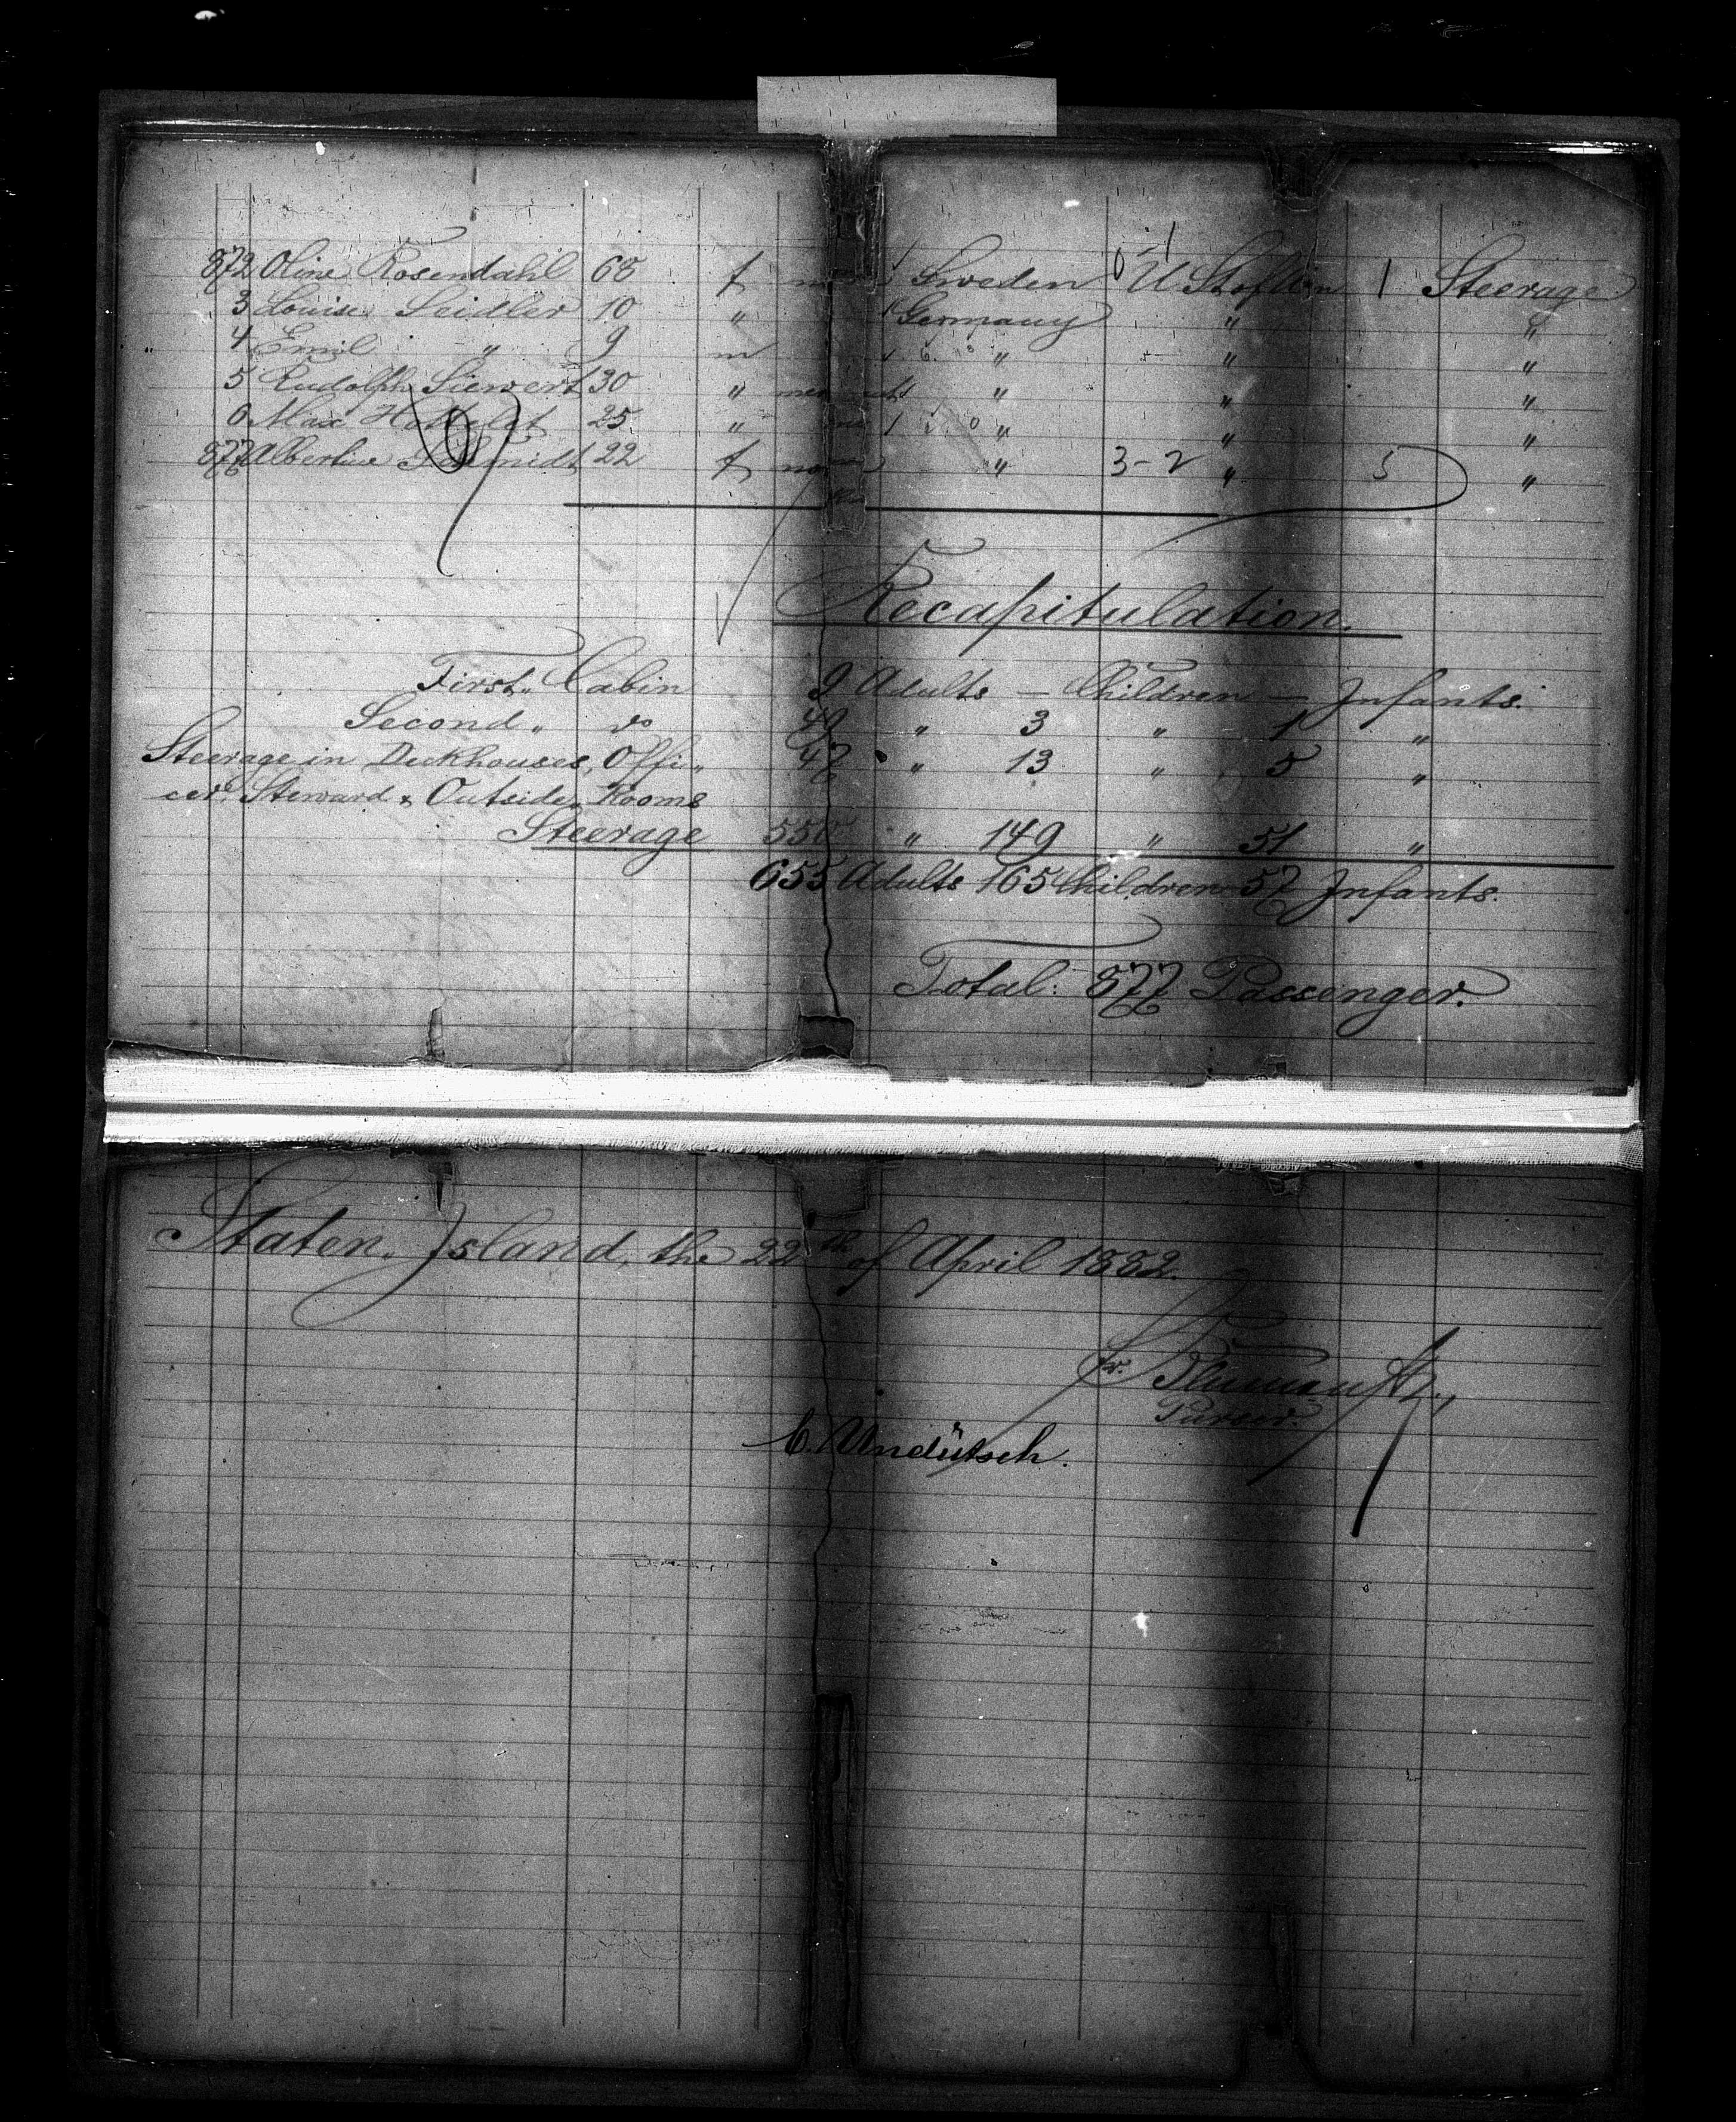 872 Oline Rosendahl 68 f Sweden U St of Am 1 Steerage
3 Louise Seidler 10 " Germany " "
4 Emil " 9 m " " "
5 Rudolph Siewert 30 " " " "
6 Max 25 " " " "
877 Albertine Schmidt 22 f " 3-2 " 5 "
Recapitulation.
First Cabin 9 Adults — Children — Infants.
Second " do 49 " 3 " 1 "
Steerage in Deckhouses, Offi" 47 " 13 " 5 "
cer, Steward & Outside Rooms
Steerage 550 " 149 " 51 "
655 Adults 165 Children 57 Infants.
Total: 877 Passenger.
Staten Island, the 22th of April 1882.
Purser.
C. Undütsch.